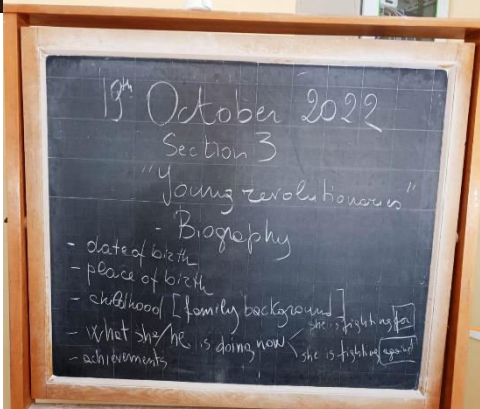 19th October 2022
Section 3
"Young revolutionaries"
- Biography
- date of birth
- place of birth
- childhood [family background]
- What she/he is doing now < she is fighting for
she is fighting against
- achievements